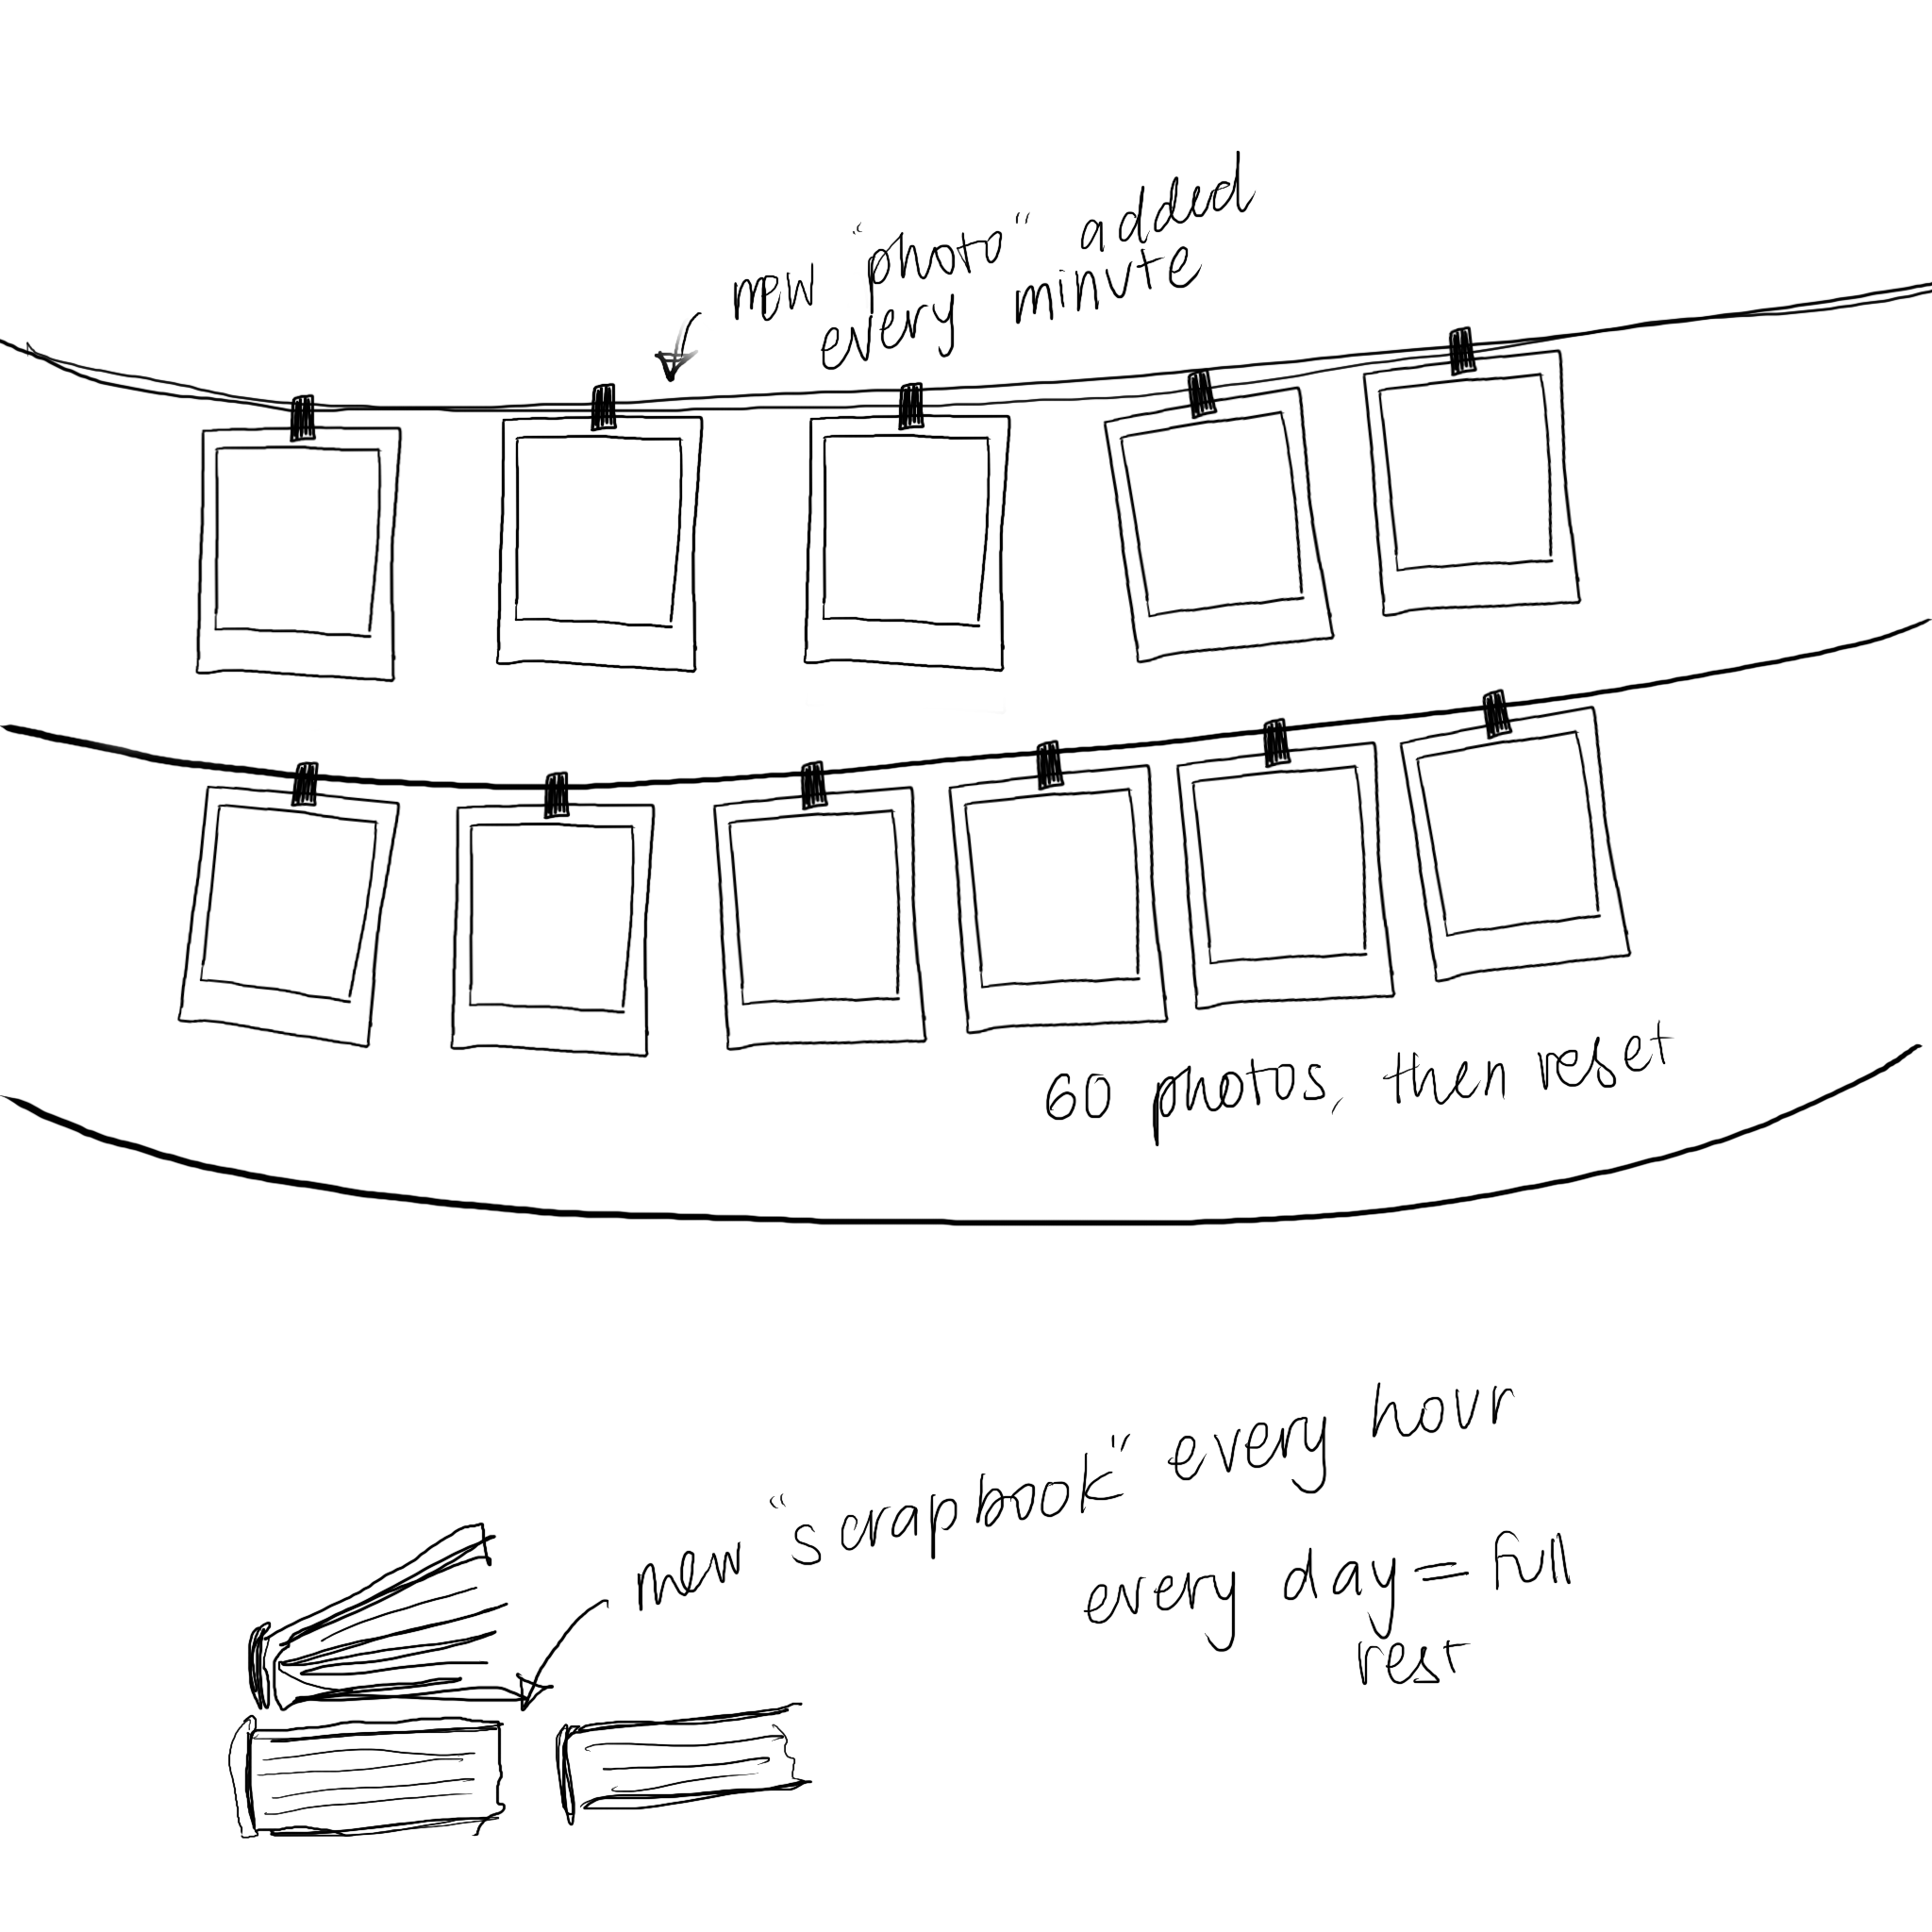 new "photo" added
every minute
60 photos, then reset
new "scrapbook" every hour
every day = full
rest